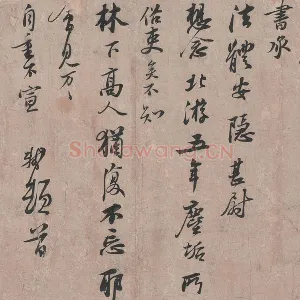 書承
法體安隱甚尉
想念北游五年塵垢所
俗吏矣不知
林下高人猶復不忘耶
會見萬萬
自重不宣 軾頓首